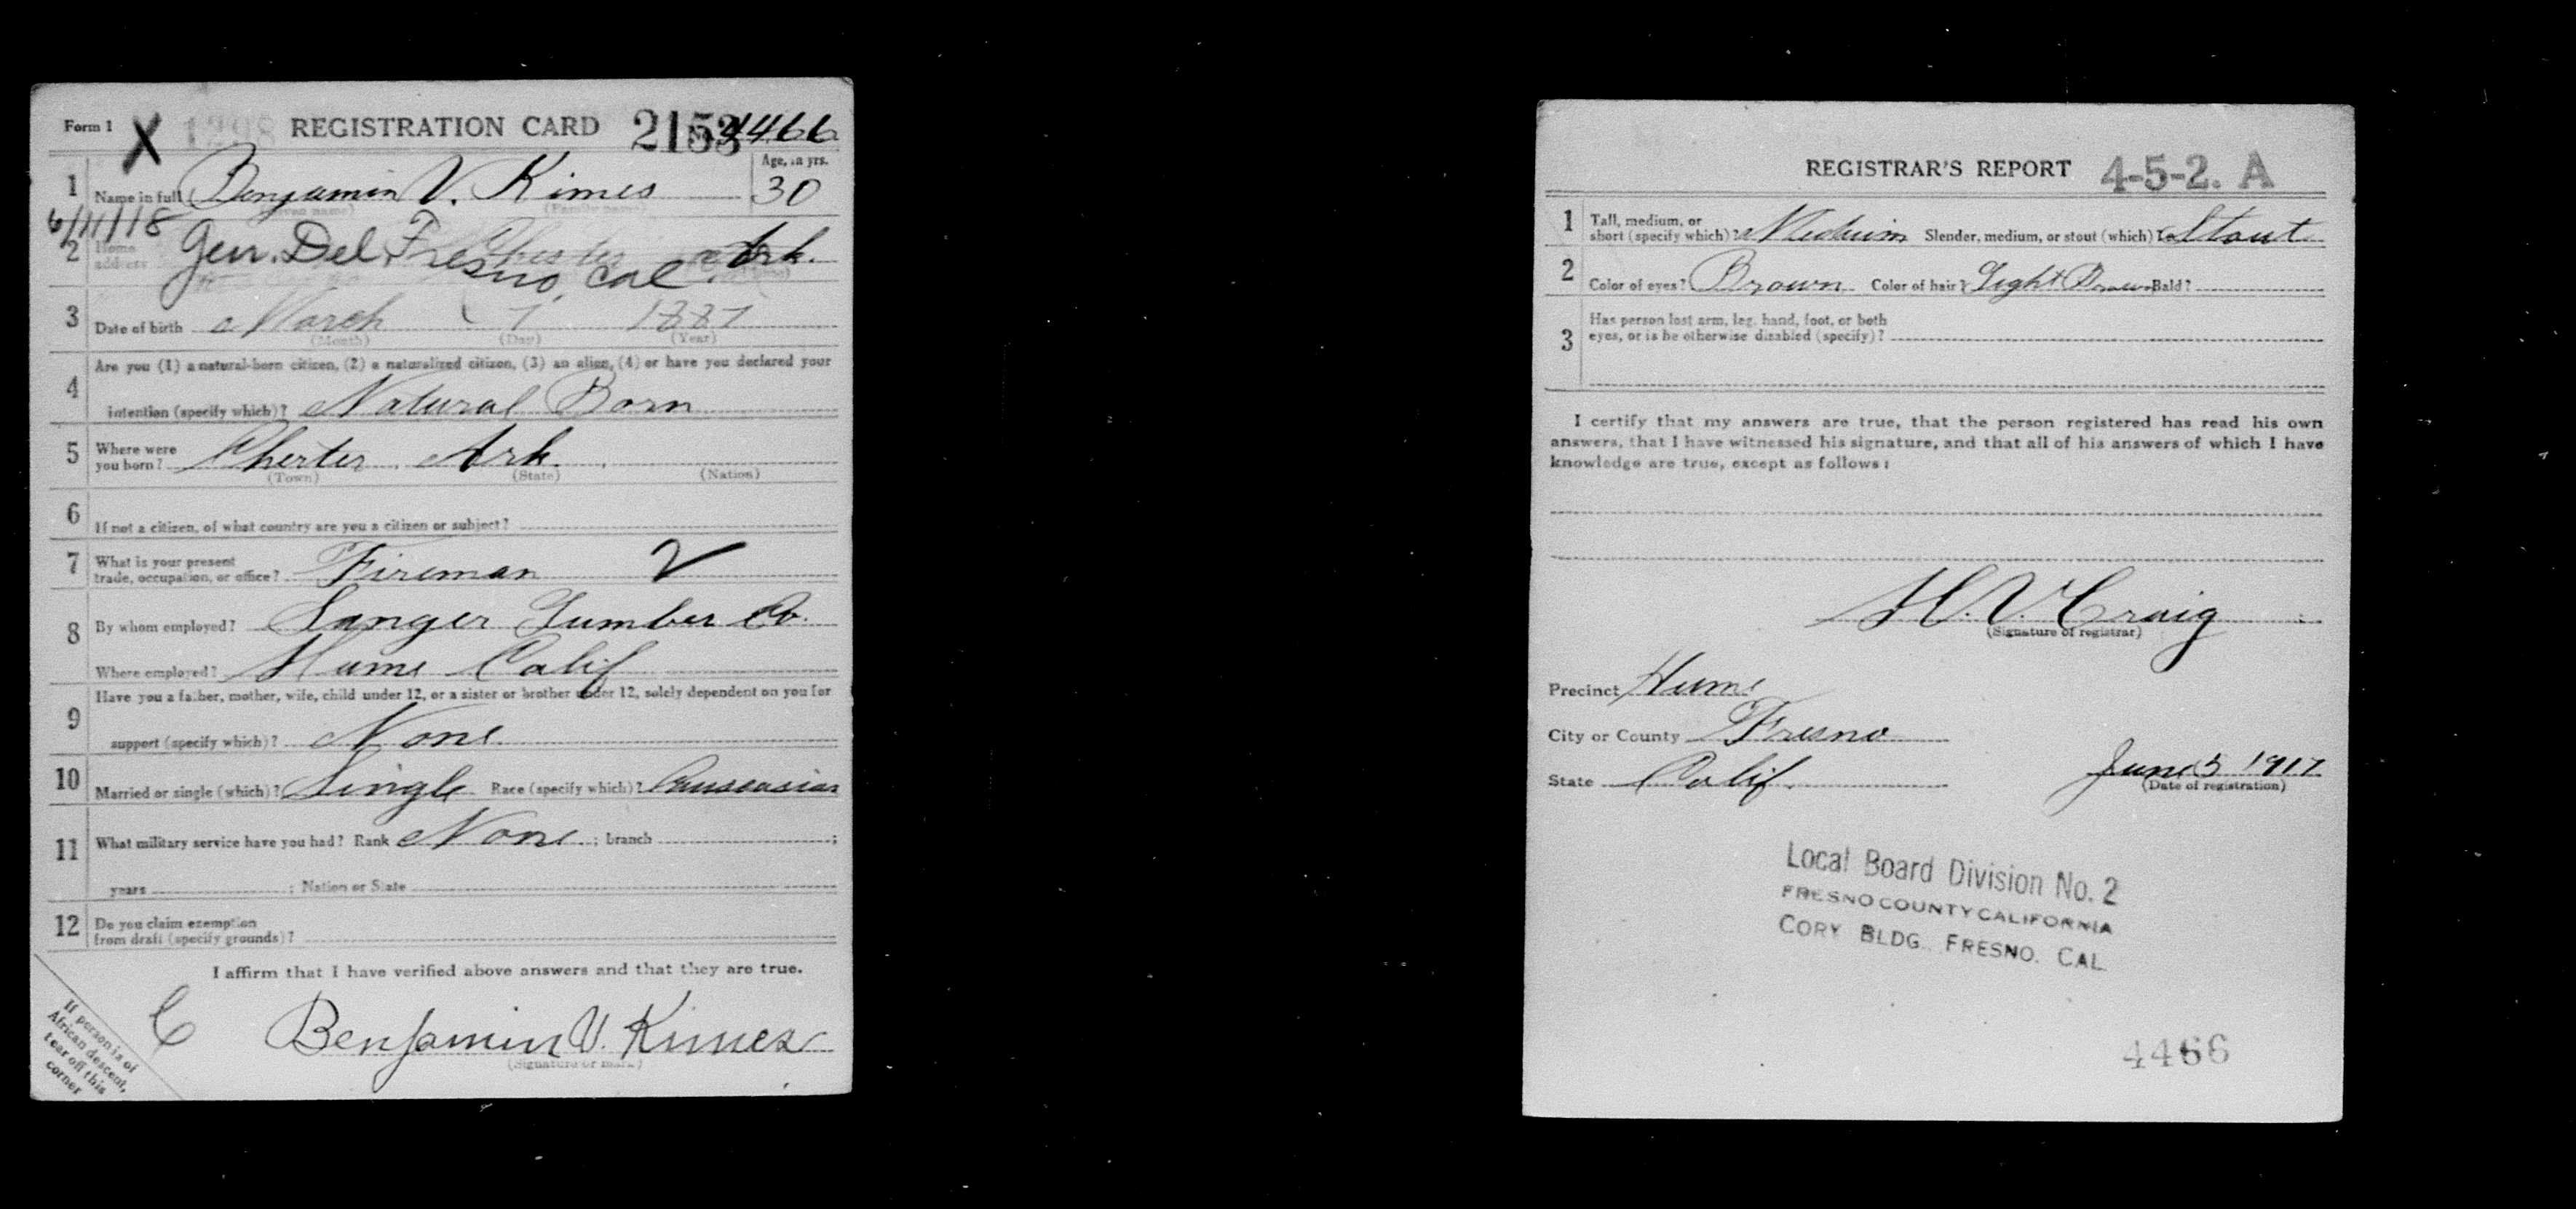 Form 1 X 1298 REGISTRATION CARD 2153 4466
1 Name in full Benjamin V. Kimes Age, in yrs. 30
(Given name) (Family name)
6/11/18
2 Home address Gen. Del. Fresno, Cal. Chester Ark.
3 Date of birth March 7 1887
(Month) (Day) (Year)
4 Are you (1) a natural-born citizen, (2) a naturalized citizen, (3) an alien, (4) or have you declared your
intention (specify which)? Natural Born
5 Where were you born? Chester, Ark.
(Town) (State) (Nation)
6 If not a citizen, of what country are you a citizen or subject?
7 What is your present trade, occupation, or office? Fireman
8 By whom employed? Sanger Lumber Co.
Where employed? Hume Calif
9 Have you a father, mother, wife, child under 12, or a sister or brother under 12, solely dependent on you for
support (specify which)? None
10 Married or single (which)? Single Race (specify which)? Causcasian
11 What military service have you had? Rank None ; branch ;
years ; Nation or State
12 Do you claim exemption
from draft (specify grounds)?
I affirm that I have verified above answers and that they are true.
C Benjamin V. Kimes
(Signature or mark)
If person is of
African descent,
tear off this
corner
REGISTRAR'S REPORT 4-5-2. A
1 Tall, medium, or
short (specify which)? Medium Slender, medium, or stout (which)? Stout
2 Color of eyes? Brown Color of hair? Light Brown Bald?
3 Has person lost arm, leg, hand, foot, or both
eyes, or is he otherwise disabled (specify)?
I certify that my answers are true, that the person registered has read his own
answers, that I have witnessed his signature, and that all of his answers of which I have
knowledge are true, except as follows:
H. V. Craig
(Signature of registrar)
Precinct Hume
City or County Fresno
State Calif.
June 5 1917
(Date of registration)
Local Board Division No. 2
FRESNO COUNTY CALIFORNIA
CORY BLDG. FRESNO. CAL.
4466